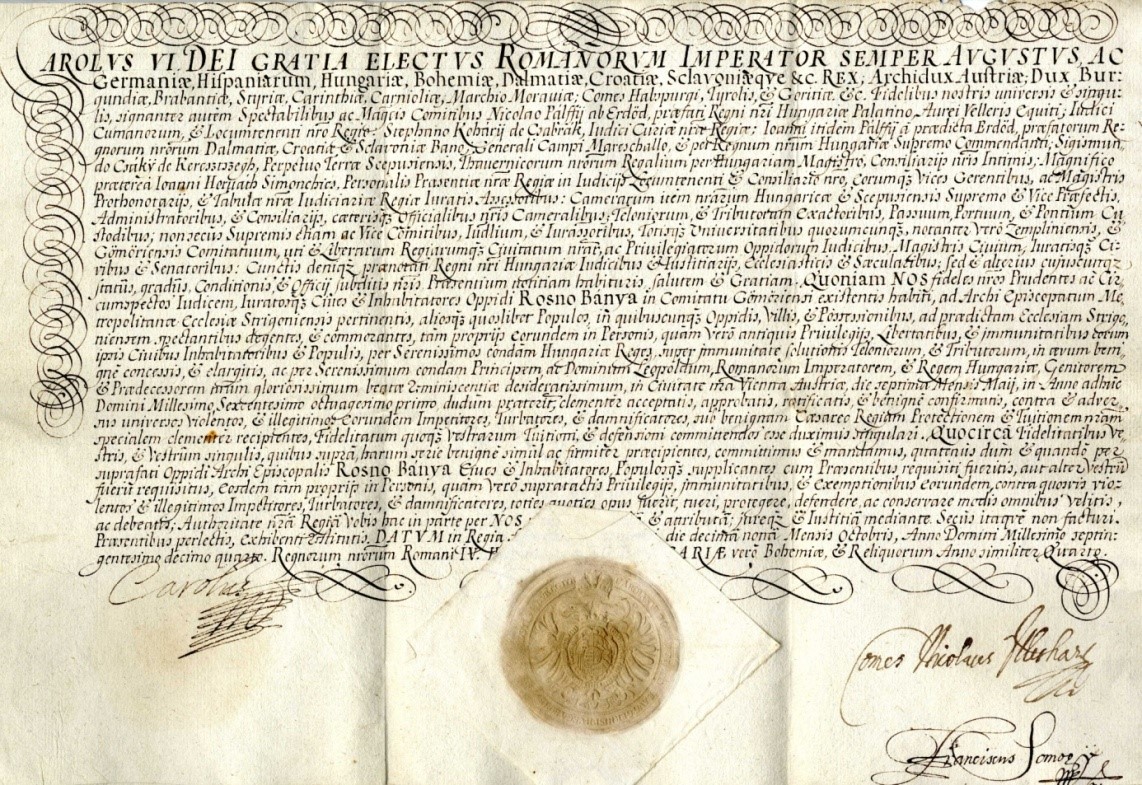 AROLVS VI DEI GRATIA ELECTVS ROMANORVM IMPERATOR SEMPER AVGVSTVS, AC
Germaniæ, Hispaniarum, Hungariæ, Bohemiæ, Dalmatiæ, Croatiæ, Sclavoniæqve &c. REX, Archidux Austriæ, Dux Bur-
gundiæ, Brabantiæ, Styriæ, Carinthiæ, Carnioliæ, Marchio Moraviæ; Comes Habspurgi, Tyrolis, & Goritiæ, &c. Fidelibus nostris universis & singu-
lis, signanter autem Spectabilibus ac Magcis Comitibus Nicolao Pálffÿ ab Erdöd, præfati Regni nri Hungariæ Palatino, Aurei Velleris Equiti; Iudici
Cumanorum, & Locumtenenti nro Regio. Stephano Koháry de Csabrák, Iudici Curiæ nræ Regiæ; Ioanni itidem Pálffÿ á prædicta Erdöd, præfatorum Re-
gnorum nrorum Dalmatiæ, Croatiæ & Sclavoniæ Bano, Generali Campi Mareschallo, & per Regnum nrum Hungariæ Supremo Commendanti; Sigismun-
do Csákÿ de Kereszszegh, Perpetuo Terræ Scepusiensis, Thavernicorum nrorum Regalium per Hungariam Magistro, Consiliarijs nris Intimis; Magnifico
præterea Ioanni Horváth Simonchics, Personalis Præsentiæ nræ Regiæ in Iudicijs Locumtenenti & Consiliario nro, eorumqs Vices Gerentibus, ac Magistris
Prothonotarijs, & Tabulæ nræ Iudiciariæ Regiæ Iuratis Assessoribus; Camerarum item nrarum Hungaricæ & Scepusiensis Supremo & Vice Præfectis,
Administratoribus, & Consiliarijs, cæterisqs Officialibus nris Cameralibus; Teloniorum, & Tributorum Exactoribus, Passuum, Portuum, & Pontium Cu-
stodibus; non secus Supremis etiam ac Vice Comitibus, Iudlium, & Iurassoribus, Totisqs Universitatibus quorumcunqs, notanter verò Zempliniensis, &
Gömöriensis Comitatuum, uti & Liberarum Regiarumqs Civitatum nrar, ac Privilegiatorum Oppidorum Iudicibus, Magistris Civium, Iuratisqs Ci-
vibus & Senatoribus: Cunctis deniqs prænotati Regni nri Hungariæ Iudicibus & Iustitiarijs, Ecclesiasticis & Sæcularibus; sed & alterius cujuscunqs
status, gradûs, Conditionis, & Officij subditis nris, Præsentium notitiam habituris, salutem & Gratiam. Quoniam NOS fideles nros Prudentes ac Cir-
cumspectos Iudicem, Iuratosqs Cives & Inhabitatores Oppidi Rosno Bánya in Comitatu Gömöriensi existentis habiti, ad Archi Episcopatum Me-
tropolitanæ Ecclesiæ Strigoniensis pertinentis, aliosqs quoslibet Populos, in quibuscunqs Oppidis, Villis, & Possessionibus, ad prædictam Ecclesiam Strigo-
niensem spectantibus degentes, & commorantes, tam proprijs Eorundem in Personis, quàm verò antiquis Privilegijs, Libertatibus, & jmmunitatibus eorum
ipsis Civibus Inhabitatoribus & Populis, per Serenissimos condam Hungariæ Reges, super jmmunitate solutionis Teloniorum, & Tributorum, in ævum beni-
gnè concessis, & elargitis, ac per Serenissimum condam Principem, ac Dominum Leopoldum, Romanorum Imperatorem, & Regem Hungariæ, Genitorem
& Prædecessorem nrum gloriosissimum beatæ reminiscentiæ desideratissimum, in Civitate nra Vienna Austriæ, die septima Mensis Maij, in Anno adhuc
Domini Millesimo, Sexcentesimo octuagesimo primo, dudum præterito, clementer acceptatis, approbatis, ratificatis, & benignè confirmatis, contra & adver-
sus universos violentos, & illegitimos Eorundem Impetitores, Turbatores, & damnificatores, sub benignam Cæsareo Regiam Protectionem & Tuitionem nram
specialem clementer recipientes, Fidelitatum quoqs Vestrarum Tuitioni, & defensioni committendos esse duximus singulari. Quocirca Fidelitatibus Ve-
stris, & Vestrûm singulis, quibus suprà, harum serie benignè simul ac firmiter præcipientes, committimus & mandamus, quatenus dum & quando per
suprafati Oppidi Archi Episcopalis Rosno Bánya Cives & Inhabitatores, Populosqs supplicantes cum Præsentibus requisiti fueritis, aut alter Vestrûm
fuerit requisitus, Eosdem tàm proprijs in Personis, quàm verò supratactis Privilegijs, jmmunitatibus, & Exemptionibus Eorundem, contra quosvis vio-
lentos & illegitimos Impetitores, Turbatores, & damnificatores, toties quoties opus fuerit, tueri, protegere, defendere, ac conservare modis omnibus velitis,
ac debeatis; Authoritate nra Regia Vobis hac in parte per NOS & attributa; jureqs & Iustitia mediante. Secùs itaqve non facturi.
Præsentibus perlectis, Exhibenti restitutis. DATVM in Regia die decima nona Mensis Octobris, Anno Domini Millesimo septin-
gentesimo decimo quarto. Regnorum nrorum Romani IV. H ARIÆ verò Bohemiæ, & Reliquorum Anno similiter Quarto.
Carolus
Comes Nicolaus Illeshazy
Franciscus Somogÿ